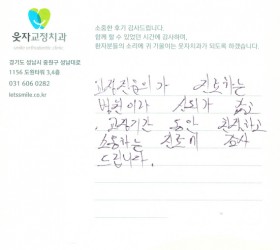 웃자교정치과
uuzza orthodontic clinic
경기도 성남시 중원구 성남대로
1156 도원타워 3,4층
031 606 0282
letssmile.co.kr
소중한 후기 감사드립니다.
함께 할 수 있었던 시간에 감사하며,
환자분들의 소리에 귀 기울이는 웃자치과가 되도록 하겠습니다.
교정전문의가 진료하는
병원이라 신뢰가 갔고
교정기간 동안 친절하고
소통하는 진료에 감사
드립니다.